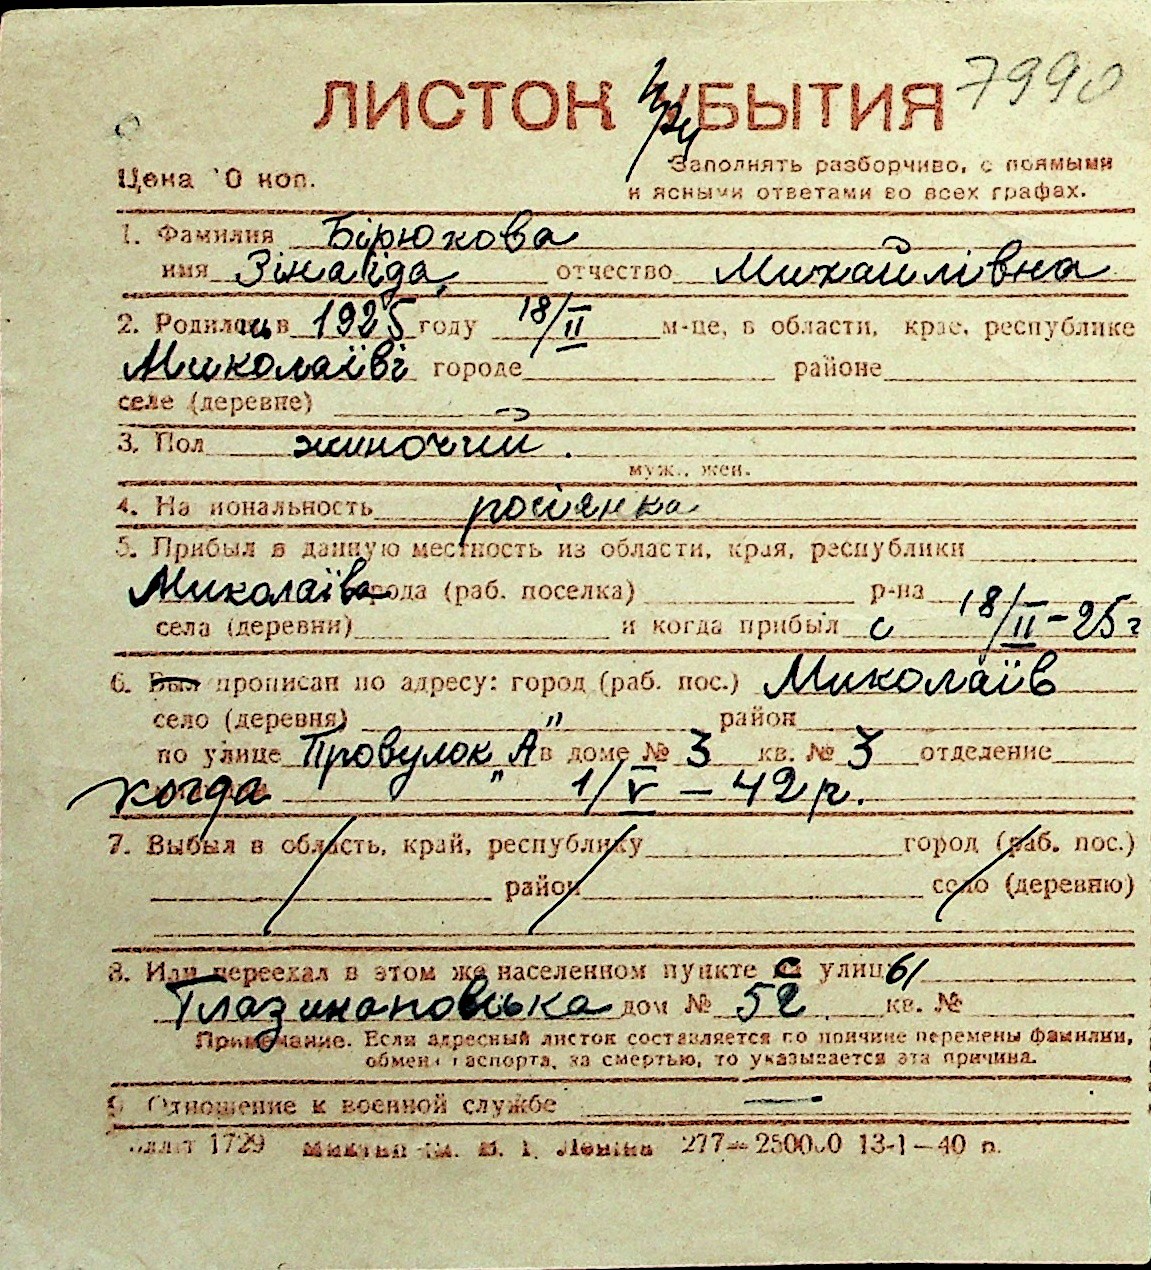 7990
ЛИСТОК УБЫТИЯ
Цена 0 коп.
Заполнять разборчиво, с прямыми
и ясными ответами во всех графах.
1. Фамилия Бірюкова
имя Зінаїда, отчество Михайлівна
2. Родилась в 1925 году 18/II м-це, в области, крае, республике
Миколаїві городе районе
селе (деревне)
3. Пол жиночий.
муж., жен.
4. Национальность росіянка
5. Прибыл в данную местность из области, края, республики
Миколаїва города (раб. поселка) р-на
села (деревни) и когда прибыл с 18/II-25 г
6. Был прописан по адресу: город (раб. пос.) Миколаїв
село (деревня) " район
по улице Провулок „А" в доме № 3 кв. № 3 отделение
когда 1/V – 42 р.
7. Выбыл в область, край, республику город (раб. пос.)
район село (деревню)
8. Или переехал в этом же населенном пункте с улицы 61
дом № 52 кв. №
Примечание. Если адресный листок составляется по причине перемены фамилии,
обмена паспорта, за смертью, то указывается эта причина.
9 Отношение к военной службе —
1729 Ленина 277— 13-1—40 п.